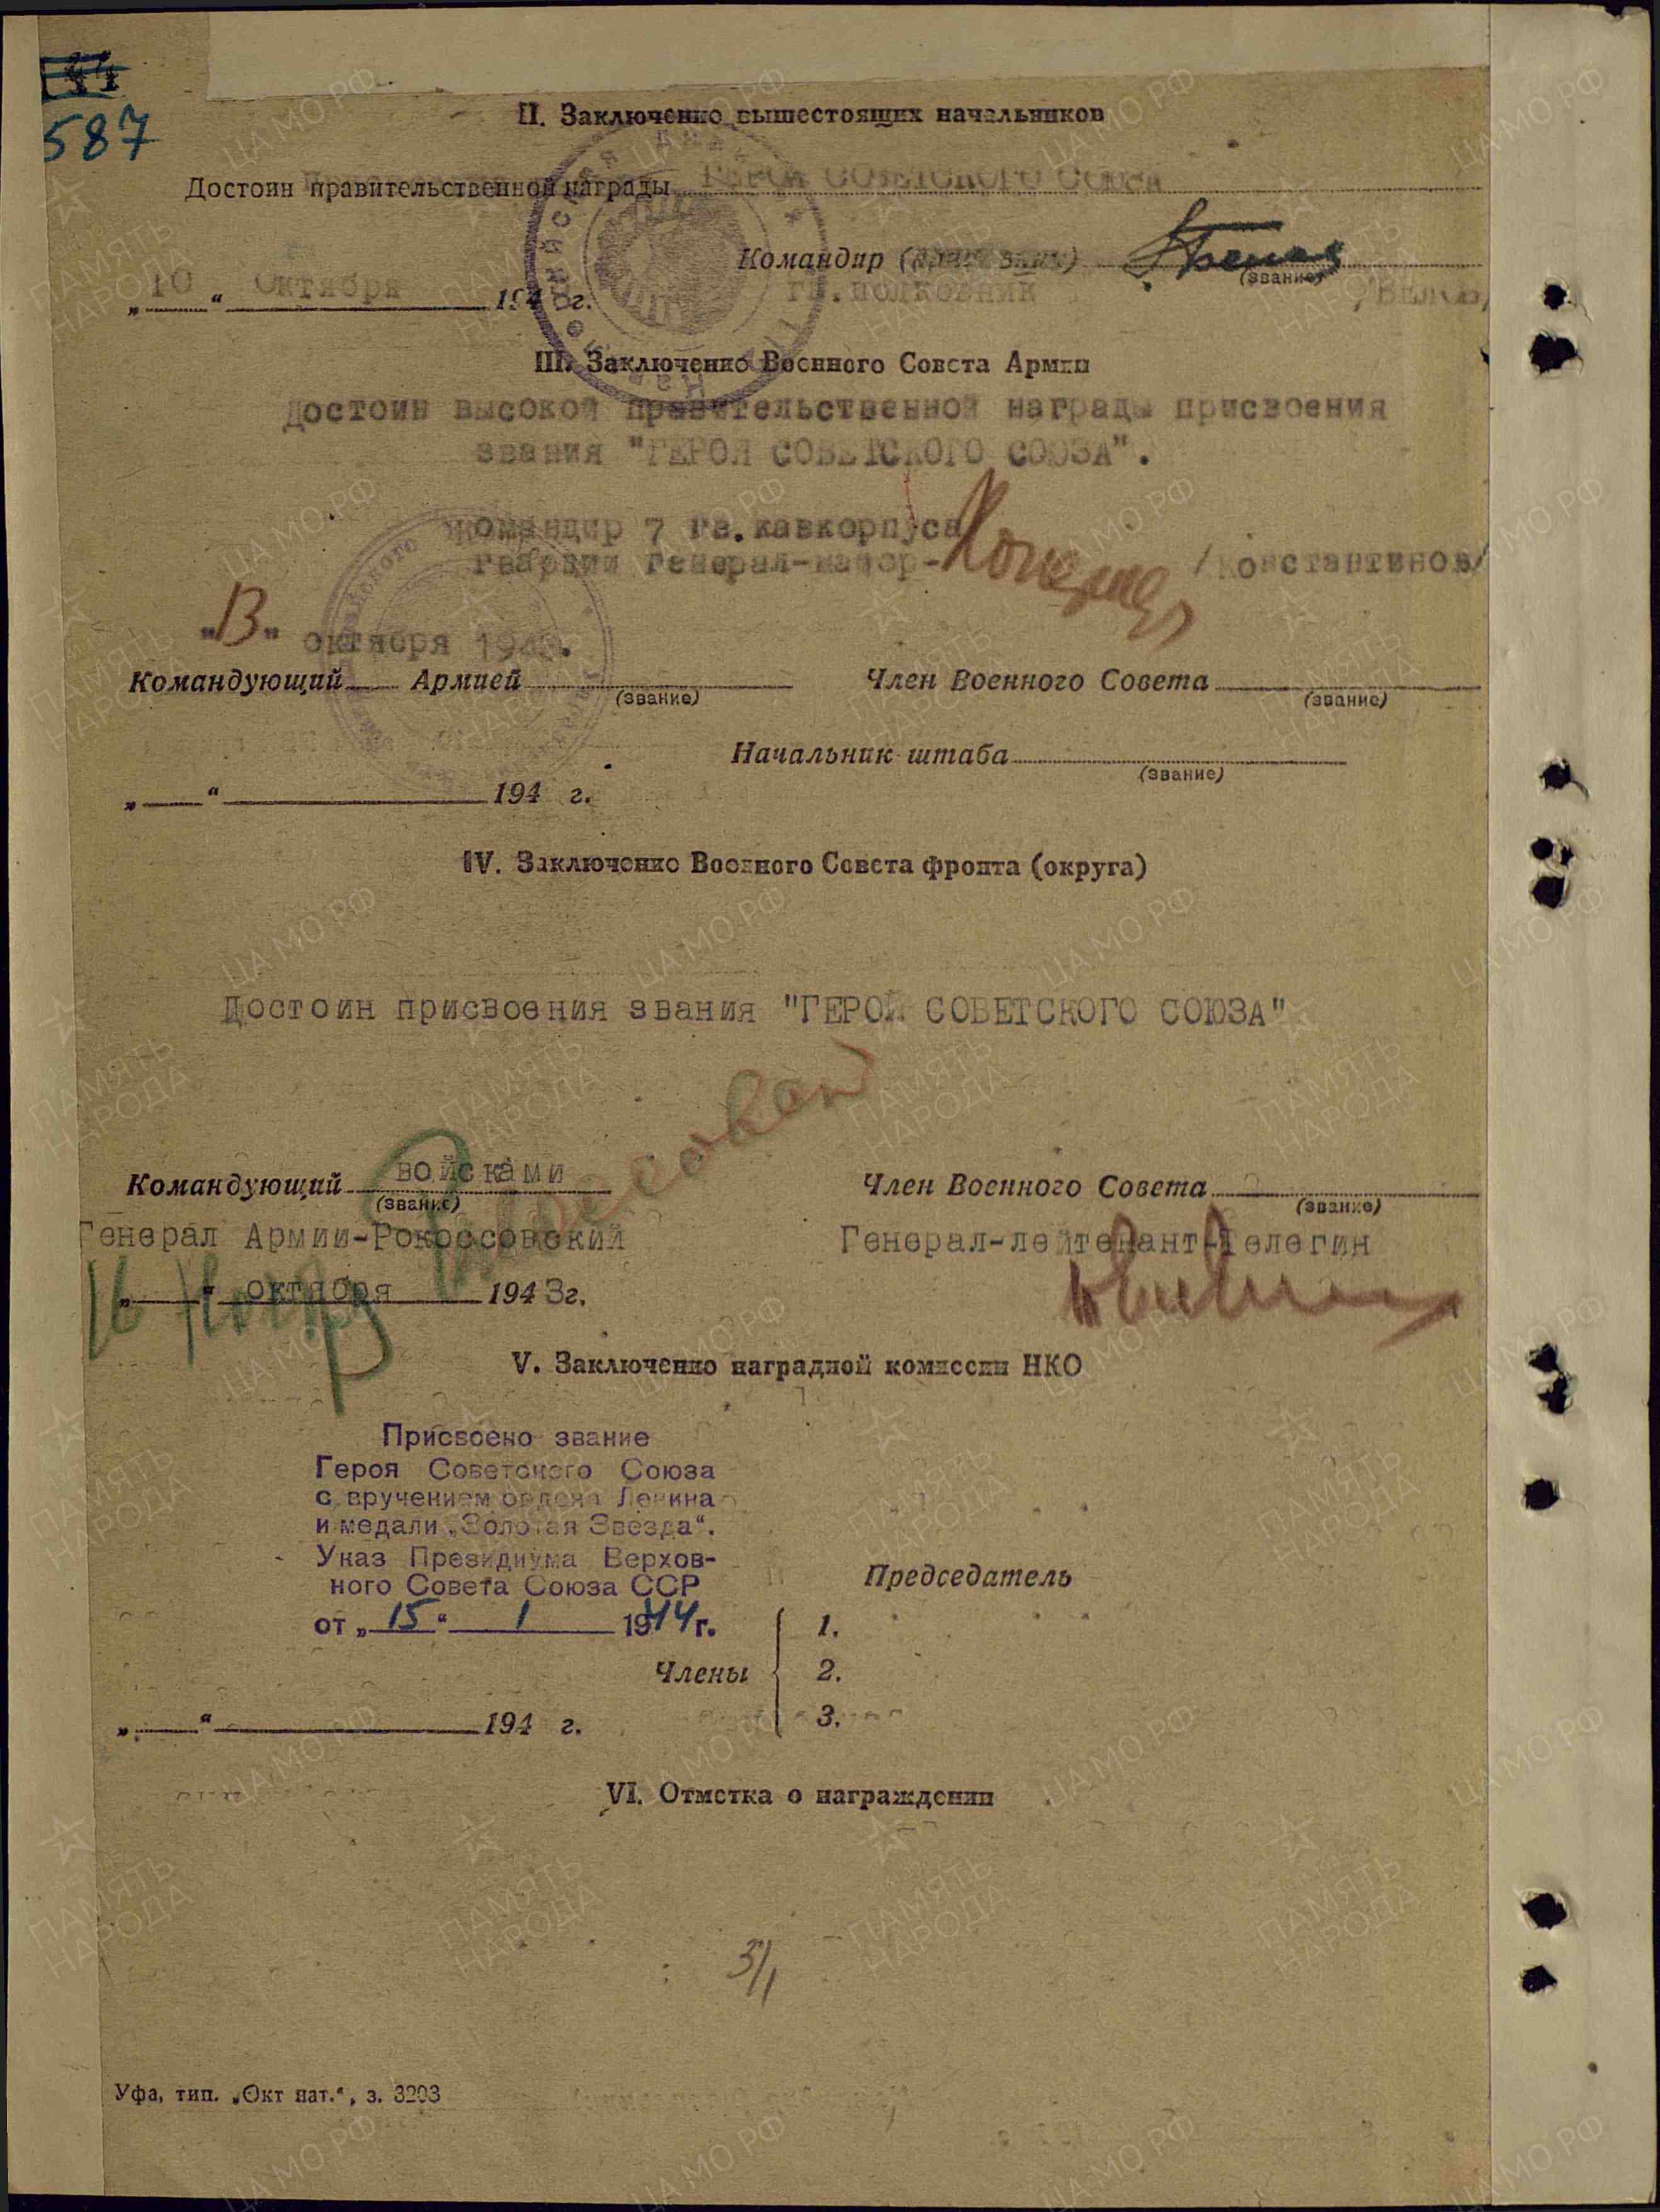 587
II. Заключение вышестоящих начальников
Достоин правительственной награды ГЕРОЯ СОВЕТСКОГО СОЮЗА
Командир
(звание)
„10“ Октября 194 г.
гв.полковник /БЕЛОВ/
III. Заключение Военного Совета Армии
Достоин высокой правительственной награды присвоения
звания "ГЕРОЯ СОВЕТСКОГО СОЮЗА".
Командир 7 гв.кавкорпуса
гвардии генерал-майор- /Константинов/
"13" октября 1943.
Командующий Армией Член Военного Совета
(звание) (звание)
Начальник штаба
(звание)
„ “ 194 г.
IV. Заключение Военного Совета фронта (округа)
Достоин присвоения звания "ГЕРОЙ СОВЕТСКОГО СОЮЗА"
Командующий войсками Член Военного Совета
(звание) (звание)
Генерал Армии-Рокоссовский Генерал-лейтенант-Телегин
16 „ “ октября 1943г.
V. Заключение наградной комиссии НКО
Присвоено звание
Героя Советского Союза
с вручением ордена Ленина
и медали „Золотая Звезда“.
Указ Президиума Верхов-
ного Совета Союза ССР
от „15“ 1 1944г.
Председатель
Члены
1.
2.
3.
„ “ 194 г.
VI. Отметка о награждении
3/1
Уфа, тип. „Окт нат.“, з. 3203
ПАМЯТЬ НАРОДА
ЦА МО РФ